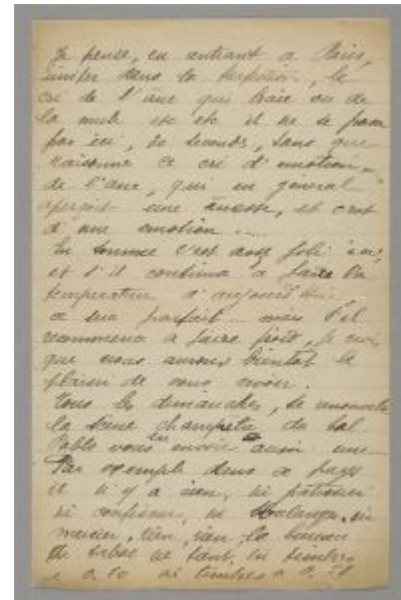 Je pense, en entrant a Paris,
imiter dans la perfection, le
cri de l'âne qui brait ou de
la mule etc etc il ne se passe
pas ici, de seconds, sans que
raisonne ce cri d'emotion,
de l'ane, qui en général
aperçoit une ânesse, et c'est
d'une emotion ....
En somme c'est assez joli ici,
et s'il continue a faire la
temperature d'aujourd'hui
ce sera parfait... mais s'il
recommence a faire froid, je crois
que nous aurons bientot le
plaisir de vous revoir.
Tous les dimanches, se renouvelle
la scene champetre du bal.
Pablo vous en envoie aussi une
Par exemple dans ce pays
il n'y a rien, ni patissier
ni confiseur, ni Boulanger, ni
mercier, rien, rien, le bureau
de tabac ne tient, ni timbres
a 0.10 ni timbres a 0.